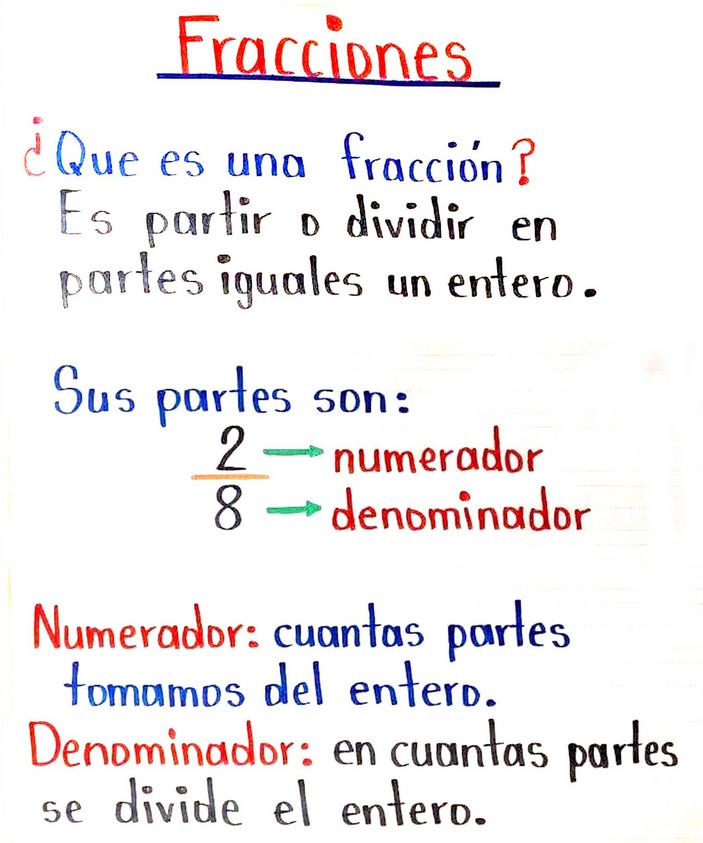 Fracciones
¿Que es una fracción?
Es partir o dividir en
partes iguales un entero.
Sus partes son:
2 → numerador
8 → denominador
Numerador: cuantas partes
tomamos del entero.
Denominador: en cuantas partes
se divide el entero.